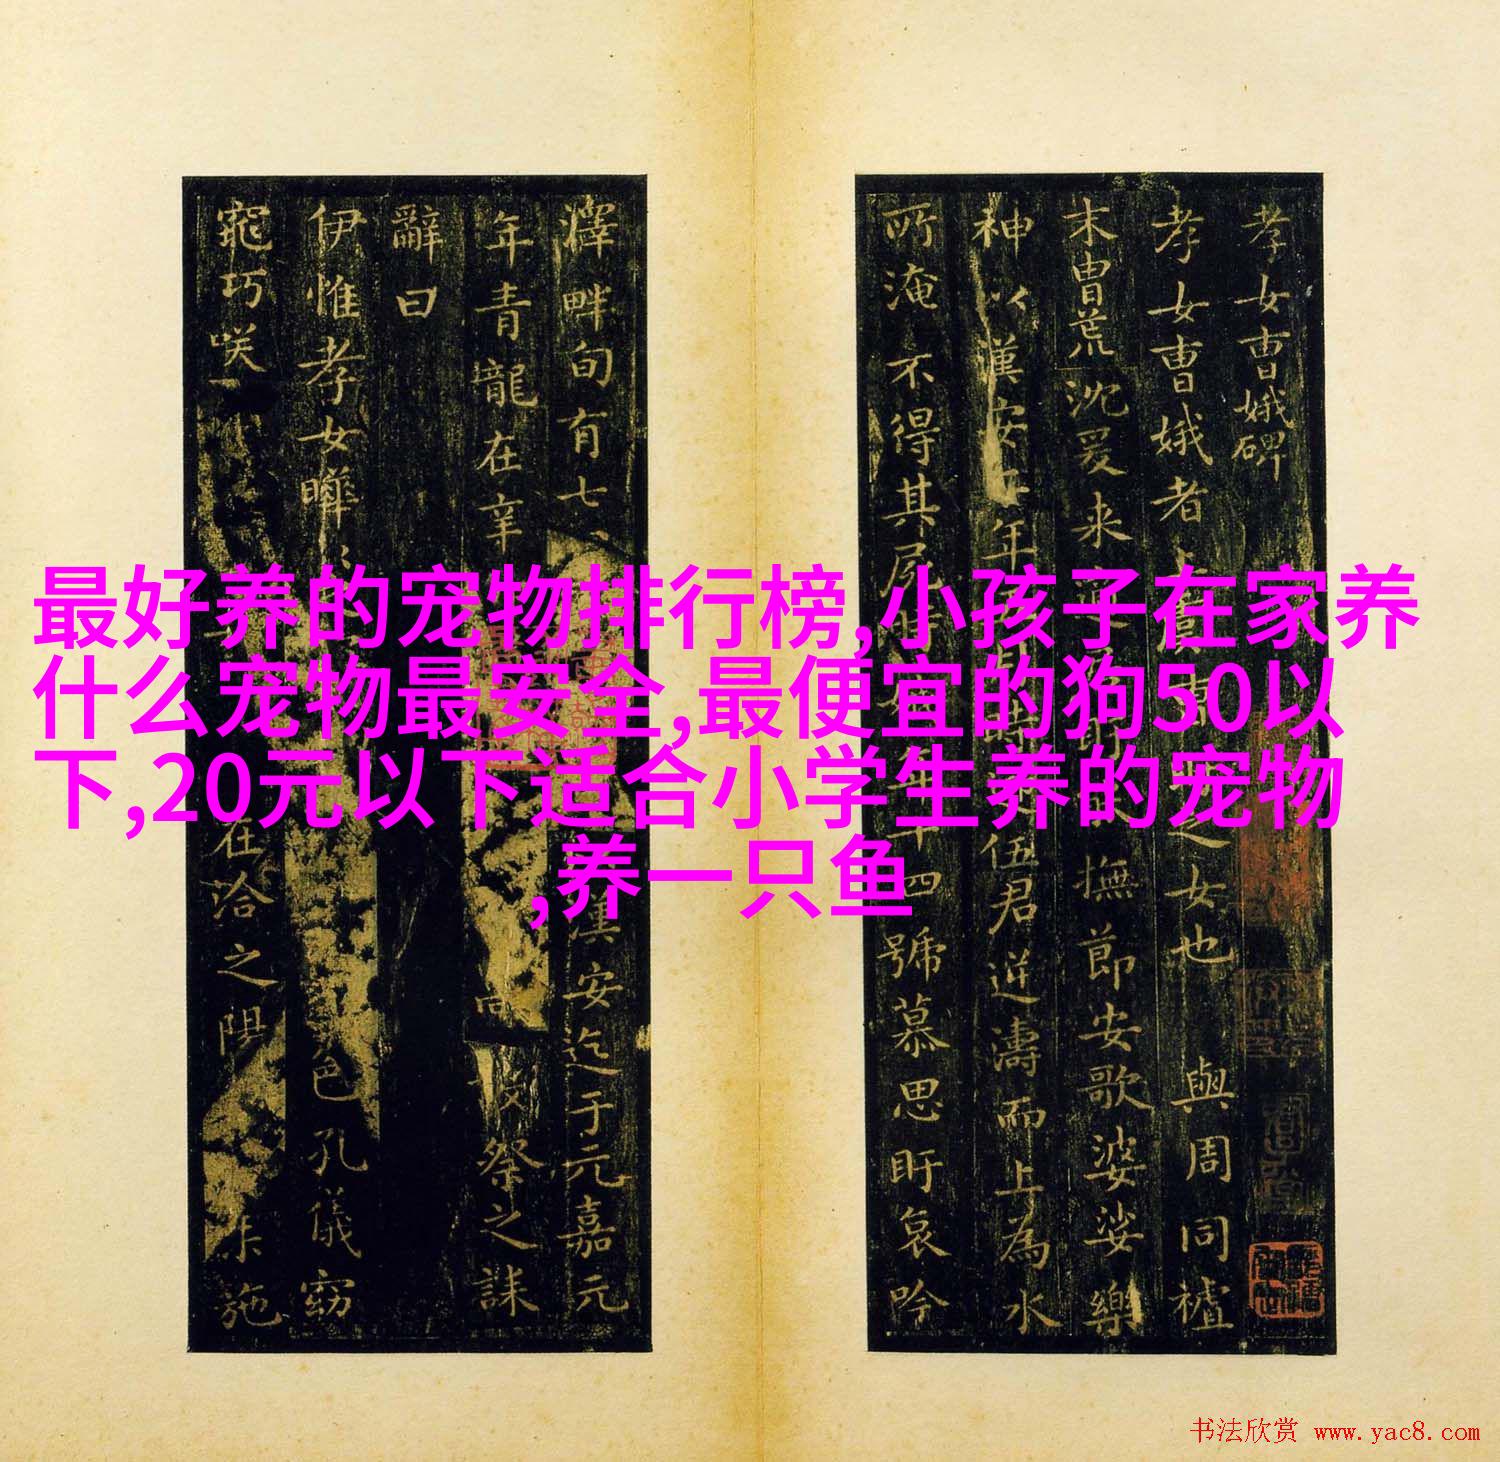 最好养的宠物排行榜,小孩子在家养
什么宠物最安全,最便宜的狗50以
下,20元以下适合小学生养的宠物
,养一只鱼
孝女曹娥碑
孝女曹娥者上虞曹盱之女也 與周同
末胄荒沈爰来 撫節安歌婆娑樂
神以漢安二年 伍君逆濤而上為水
所淹不得其屍 年十四號慕思盱哀吟
澤畔旬有七 漢安迄于元嘉元
年青龍在辛 祭之誄
辭曰
伊惟孝女曄 色孔儀窈
窕巧咲 在洽之陽 施
书法欣赏 www.yac8.com